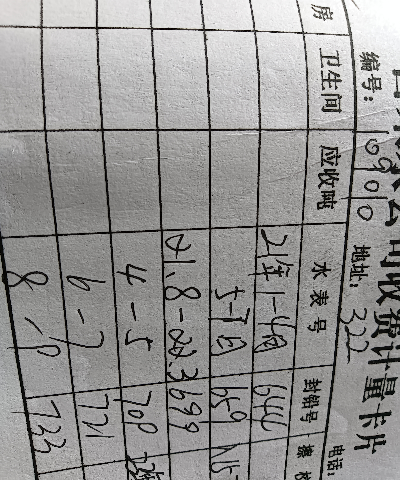 公司收费计量卡片
编号: 09010 地址: 322 电话:
房 卫生间 应收吨 水表号 封铅号
21年1-4月 644
5-7月 659
21.8-22.3 699
4-5 709
6-7 721
8-9 733